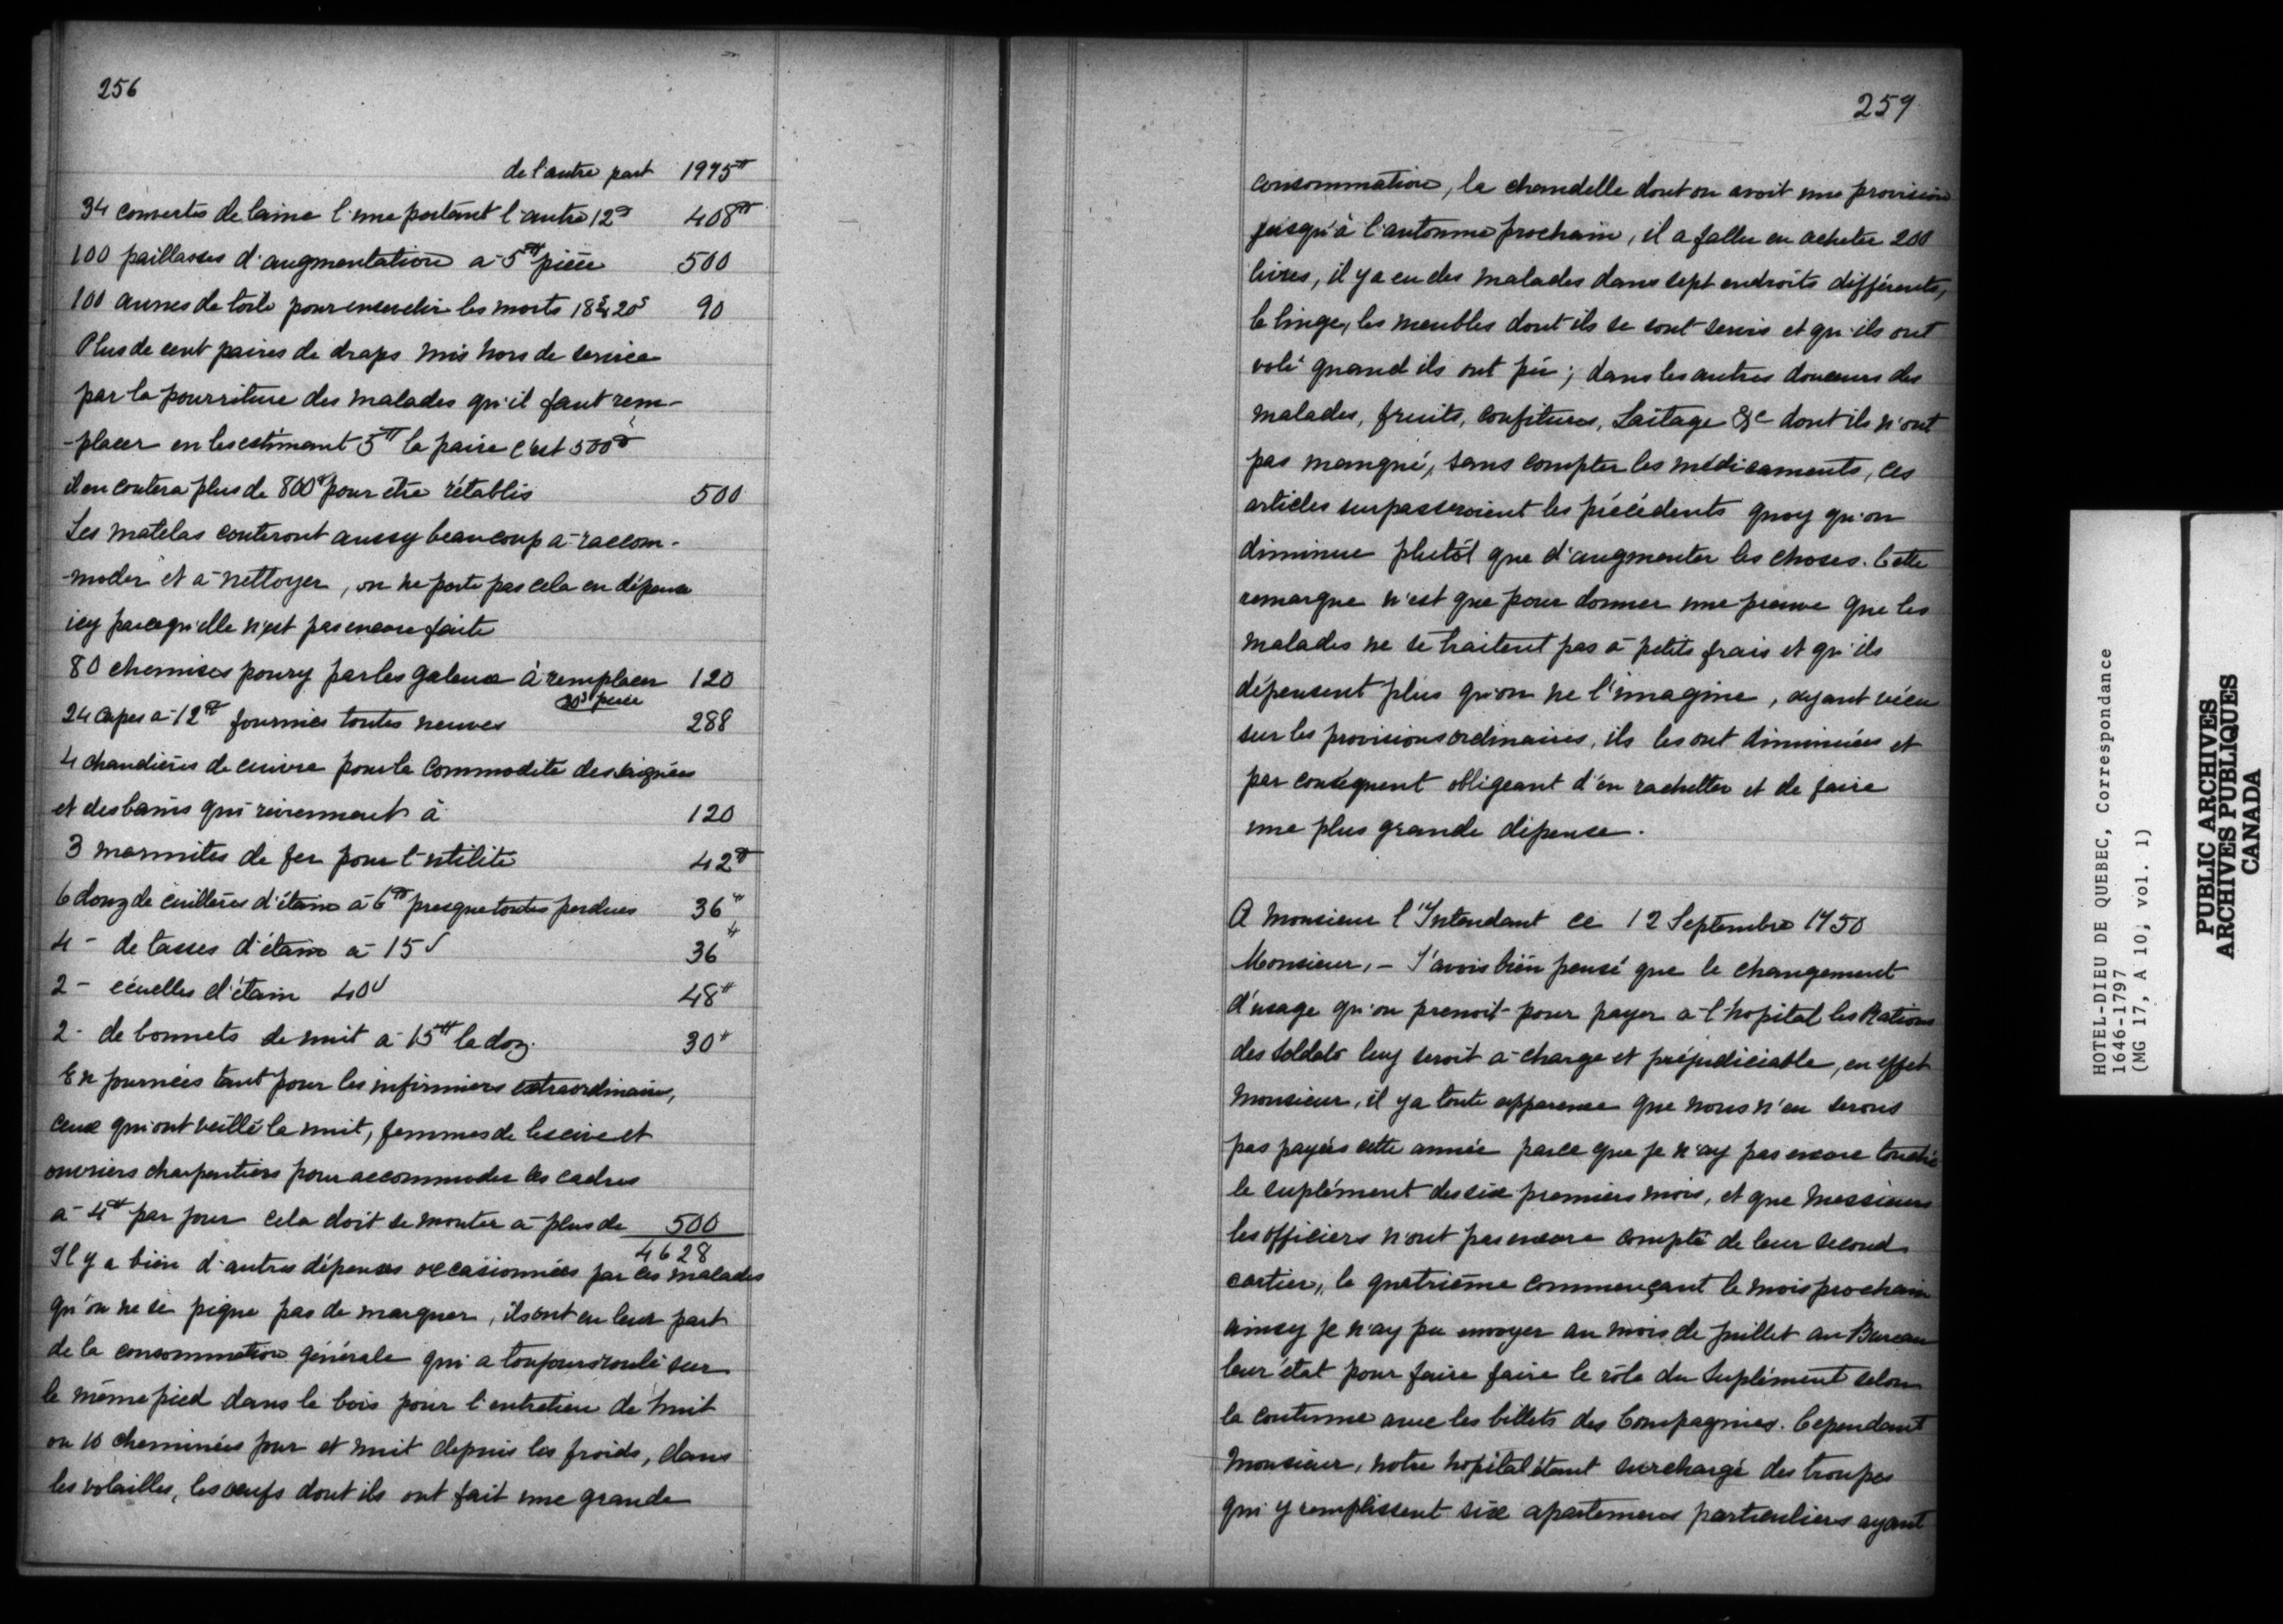 256
de l'autre part 1975#
34 couvertes de laine l'une portant l'autre 12# 408#
100 paillasses d'augmentation a 5# pièce 500
100 aunes de toile pour ensevelir les morts 18 à 20s 90
Plus de cent paires de draps mis hors de service
par la pourriture des malades qu'il faut rem-
-placer en les estimant 5# la paire c'est 500#
il en coutera plus de 800# pour être rétablis 500
Les matelas couteront aussy beaucoup a raccom-
-moder et a nettoyer, on ne porte pas cela en dépense
icy parcequ'elle n'est pas encore faite
80 chemises poury par les galeux à remplacer 120
30s pièce
24 capes a 12# fournies toutes neuves 288
4 chaudières de cuivre pour la commodité des saignées
et des bains qui reviennent à 120
3 marmites de fer pour l'utilité 42#
6 douz de cuillères d'étain à 6# presque toutes perdues 36#
4 - de tasses d'étain a 15s 36#
2 - écuelles d'étain 40s 48#
2 - de bonnets de nuit a 15# la doz. 30#
En journées tant pour les infirmiers extraordinaires,
ceux qui ont veillé la nuit, femmes de lescive et
ouvriers charpentiers pour accommoder les cadres
a 4# par jour cela doit se monter a plus de 500
4628
Il y a bien d'autres dépenses occasionnées par ces malades
qu'on ne se pique pas de marquer, ils ont eu leur part
de la consommation générale qui a toujours roulé sur
le même pied dans le bois pour l'entretien de huit
ou 10 cheminées jour et nuit depuis les froids, dans
les volailles, les oeufs dont ils ont fait une grande
259
consommation, la chandelle dont on avoit une provision
jusqu'à l'automne prochain, il a fallu en acheter 200
livres, il y a eu des malades dans sept endroits différents,
le linge, les meubles dont ils se sont servis et qu'ils ont
volé quand ils ont pu; dans les autres douceurs des
malades, fruits, confitures, Laitage &c dont ils n'ont
pas manqué, sans compter les médicaments, ces
articles surpasseroient les précédents quoy qu'on
diminue plutôt que d'augmenter les choses. Cette
remarque n'est que pour donner une preuve que les
malades ne se traitent pas à petits frais et qu'ils
dépensent plus qu'on ne l'imagine, ayant vécu
sur les provisions ordinaires, ils les ont diminuées et
par conséquent obligeant d'en rachetter et de faire
une plus grande dépense.
A Monsieur l'Intendant ce 12 Septembre 1750
Monsieur, - J'avois bien pensé que le changement
d'usage qu'on prenoit pour payer a l'hopital les Rations
des soldats luy seroit a charge et préjudiciable, en effet
Monsieur, il y a toute apparence que nous n'en serons
pas payées cette année parce que je n'ay pas encore touché
le suplément des six premiers mois, et que Messieurs
les officiers n'ont pas encore compté de leur second
cartier, le quatrième commençant le mois prochain
ainsy je n'ay pu envoyer au mois de juillet au Bureau
leur état pour faire faire le rôle du Suplément selon
la coutume avec les billets des Compagnies. Cependant
Monsieur, notre hôpital étant surchargé des troupes
qui y remplissent six apartemens particuliers ayant
HOTEL-DIEU DE QUEBEC, Correspondance
1646-1797
(MG 17, A 10, vol. 1)
PUBLIC ARCHIVES
ARCHIVES PUBLIQUES
CANADA